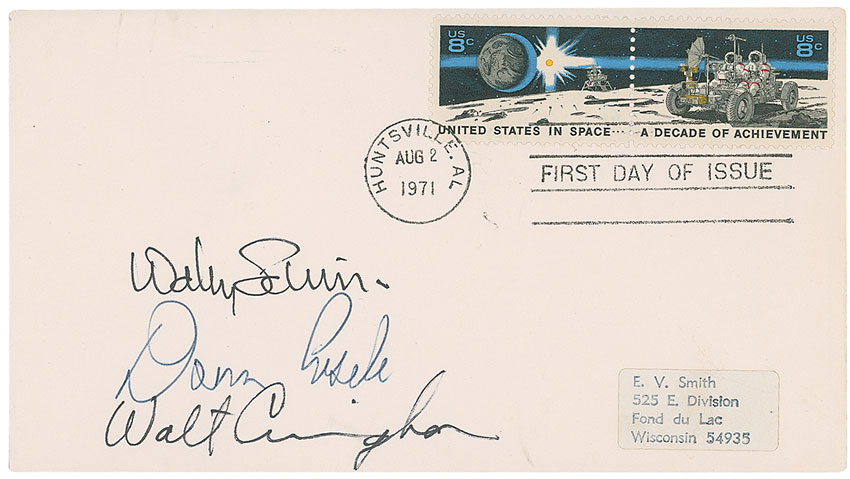 US 8c
US 8c
UNITED STATES IN SPACE... A DECADE OF ACHIEVEMENT
HUNTSVILLE. AL
AUG 2
1971
FIRST DAY OF ISSUE
Wally Schirra
Donn Eisele
Walt Cunningham
E. V. Smith
525 E. Division
Fond du Lac
Wisconsin 54935